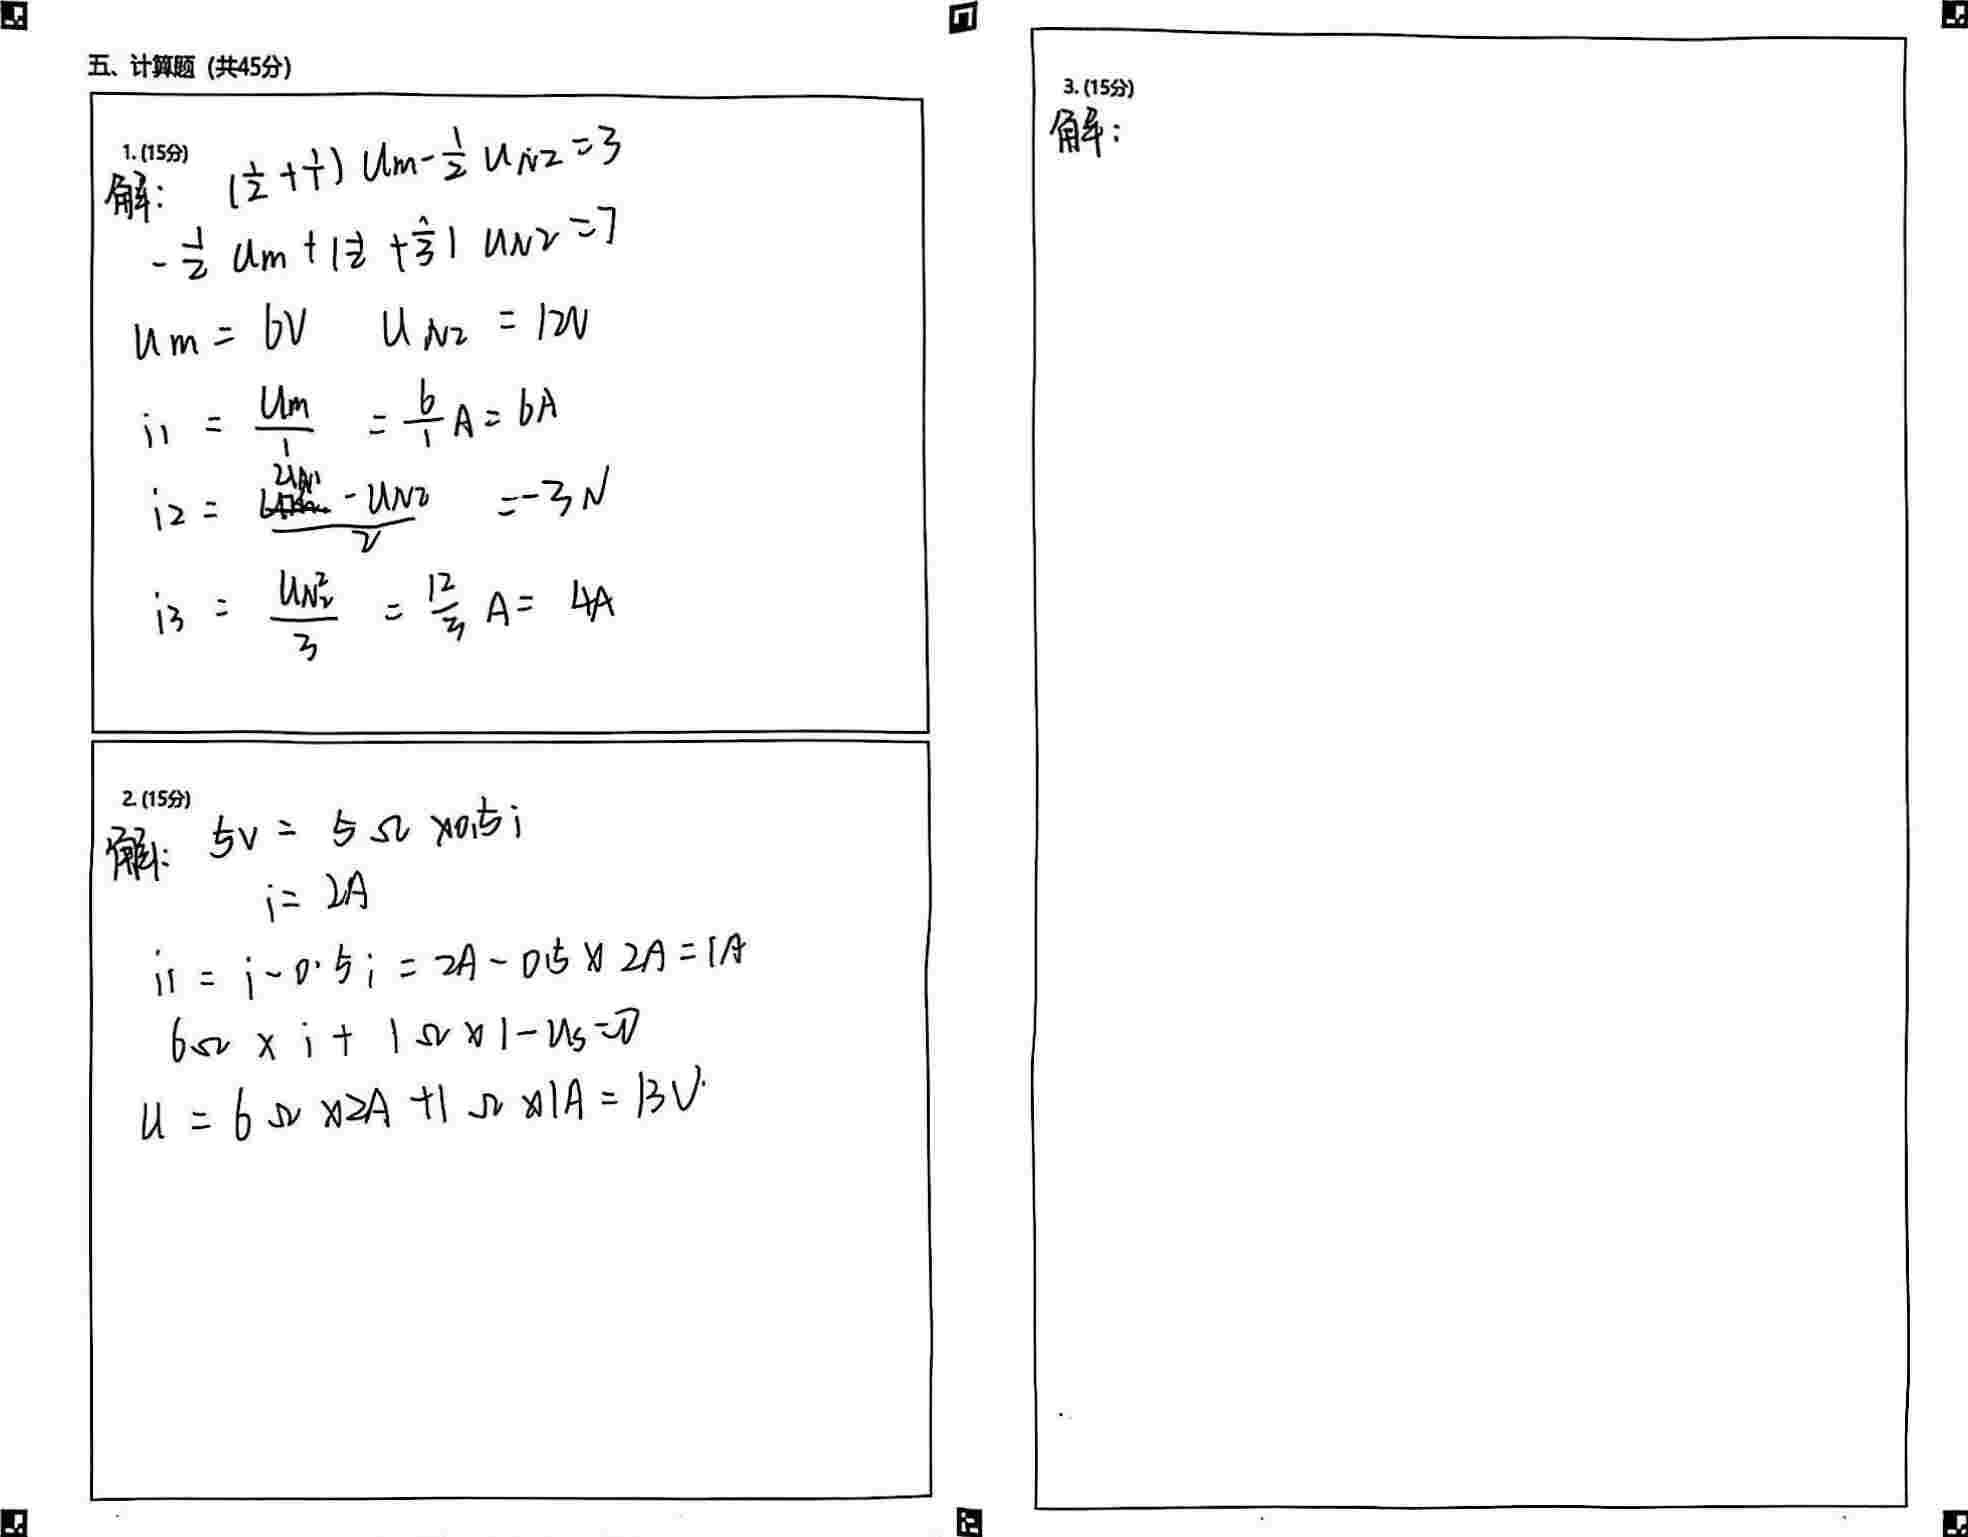 五、计算题 (共45分)
1. (15分)
解: (1/2 + 1/1) Um - 1/2 UN2 = 3
- 1/2 Um + (1/2 + 1/3) UN2 = 7
Um = 6V UN2 = 12V
i1 = Um/1 = 6/1 A = 6A
i2 = (UN1 - UN2)/2 = -3A
i3 = UN2/3 = 12/3 A = 4A
2. (15分)
解: 5V = 5Ω × 0.5i
i = 2A
i1 = i - 0.5i = 2A - 0.5 × 2A = 1A
6Ω × i + 1Ω × 1 - Us = 0
U = 6Ω × 2A + 1Ω × 1A = 13V.
3. (15分)
解: